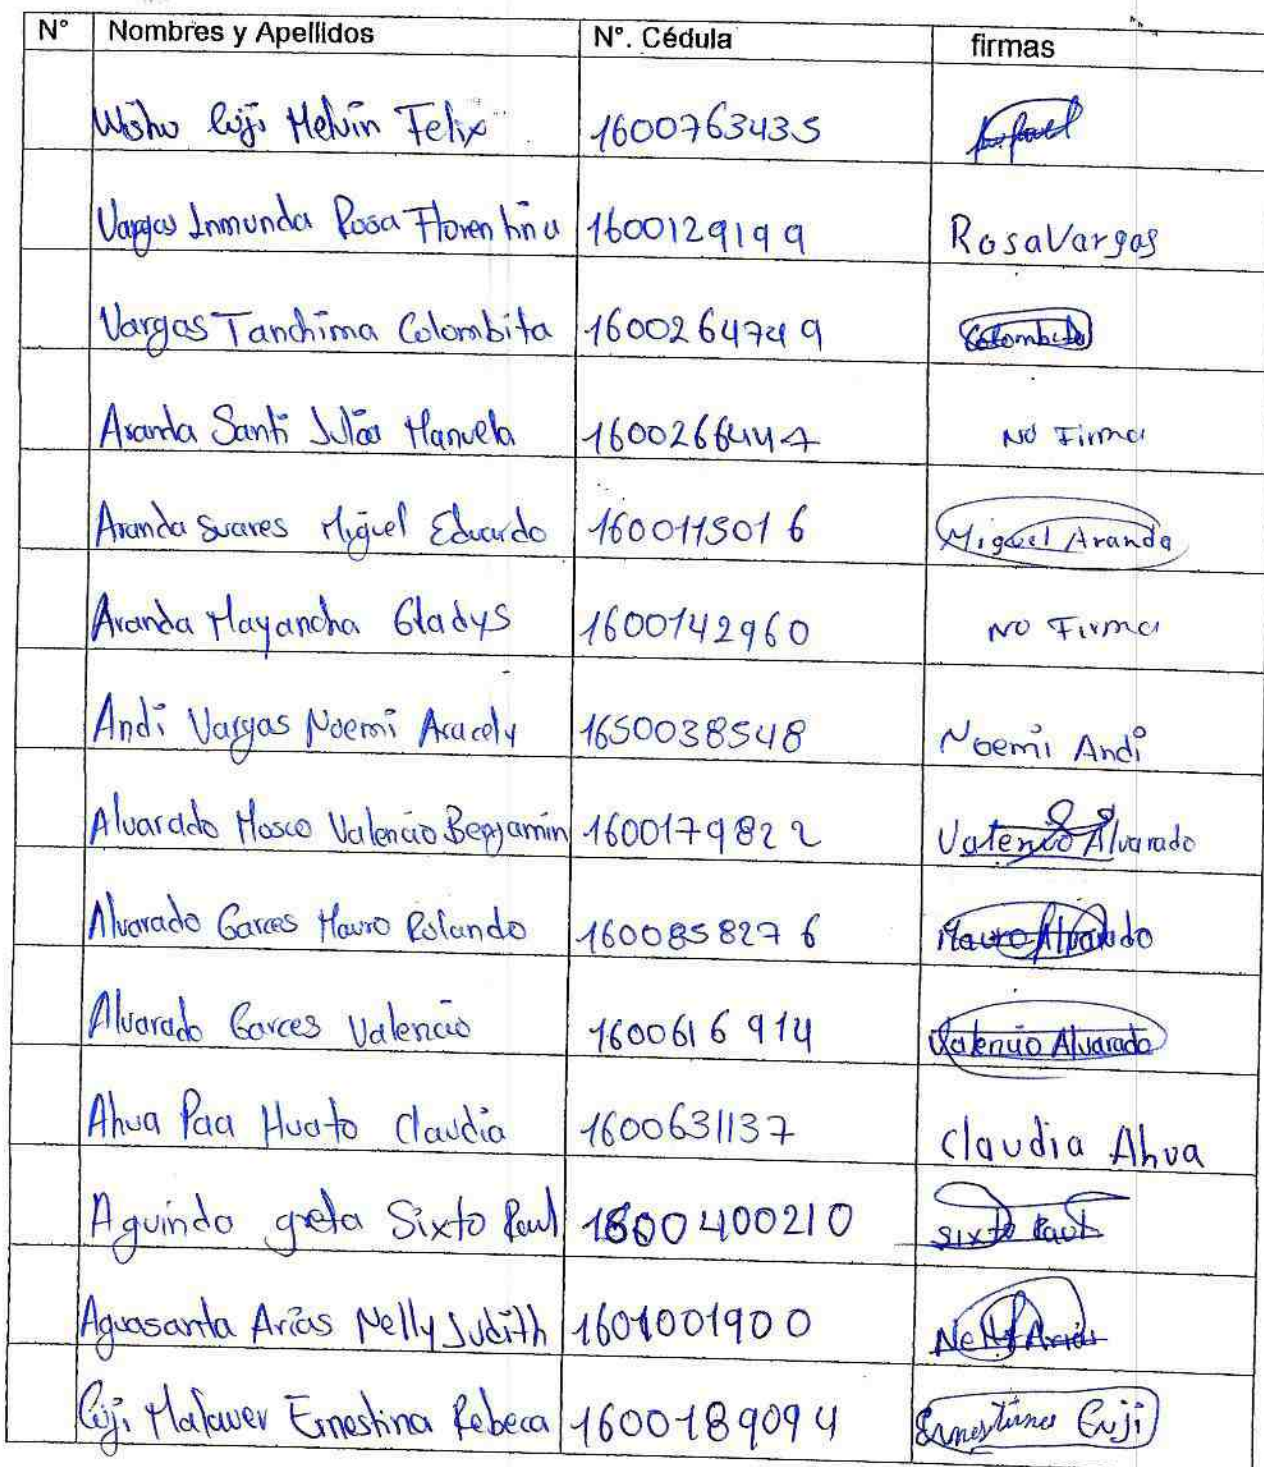 N° Nombres y Apellidos N°. Cédula firmas
Cuji Melvin Felix 1600763435
Vargas Inmunda Rosa Florentina 1600129199 Rosa Vargas
Vargas Tanchima Colombita 1600264749 Colombita
Aranda Santi Manuela 1600266447 No Firma
Aranda Suares Miguel Eduardo 1600115016 Miguel Aranda
Aranda Mayancha Gladys 1600142960 No Firma
Andi Vargas Noemi Aracely 1650038548 Noemi Andi
Alvarado Mosco Valencio Benjamin 1600179822 Valencio Alvarado
Alvarado Garces Mauro Rolando 1600858276 Mauro Alvarado
Alvarado Garces Valencio 1600616914 Valencio Alvarado
Ahua Paa Huato Claudia 1600631137 Claudia Ahua
Aguinda greta Sixto Raul 1600400210 Sixto Raul
Aguasanta Arias Nelly Judith 1601001900 Nelly Arias
Cuji Malaver Ernestina Rebeca 1600189094 Ernestina Cuji